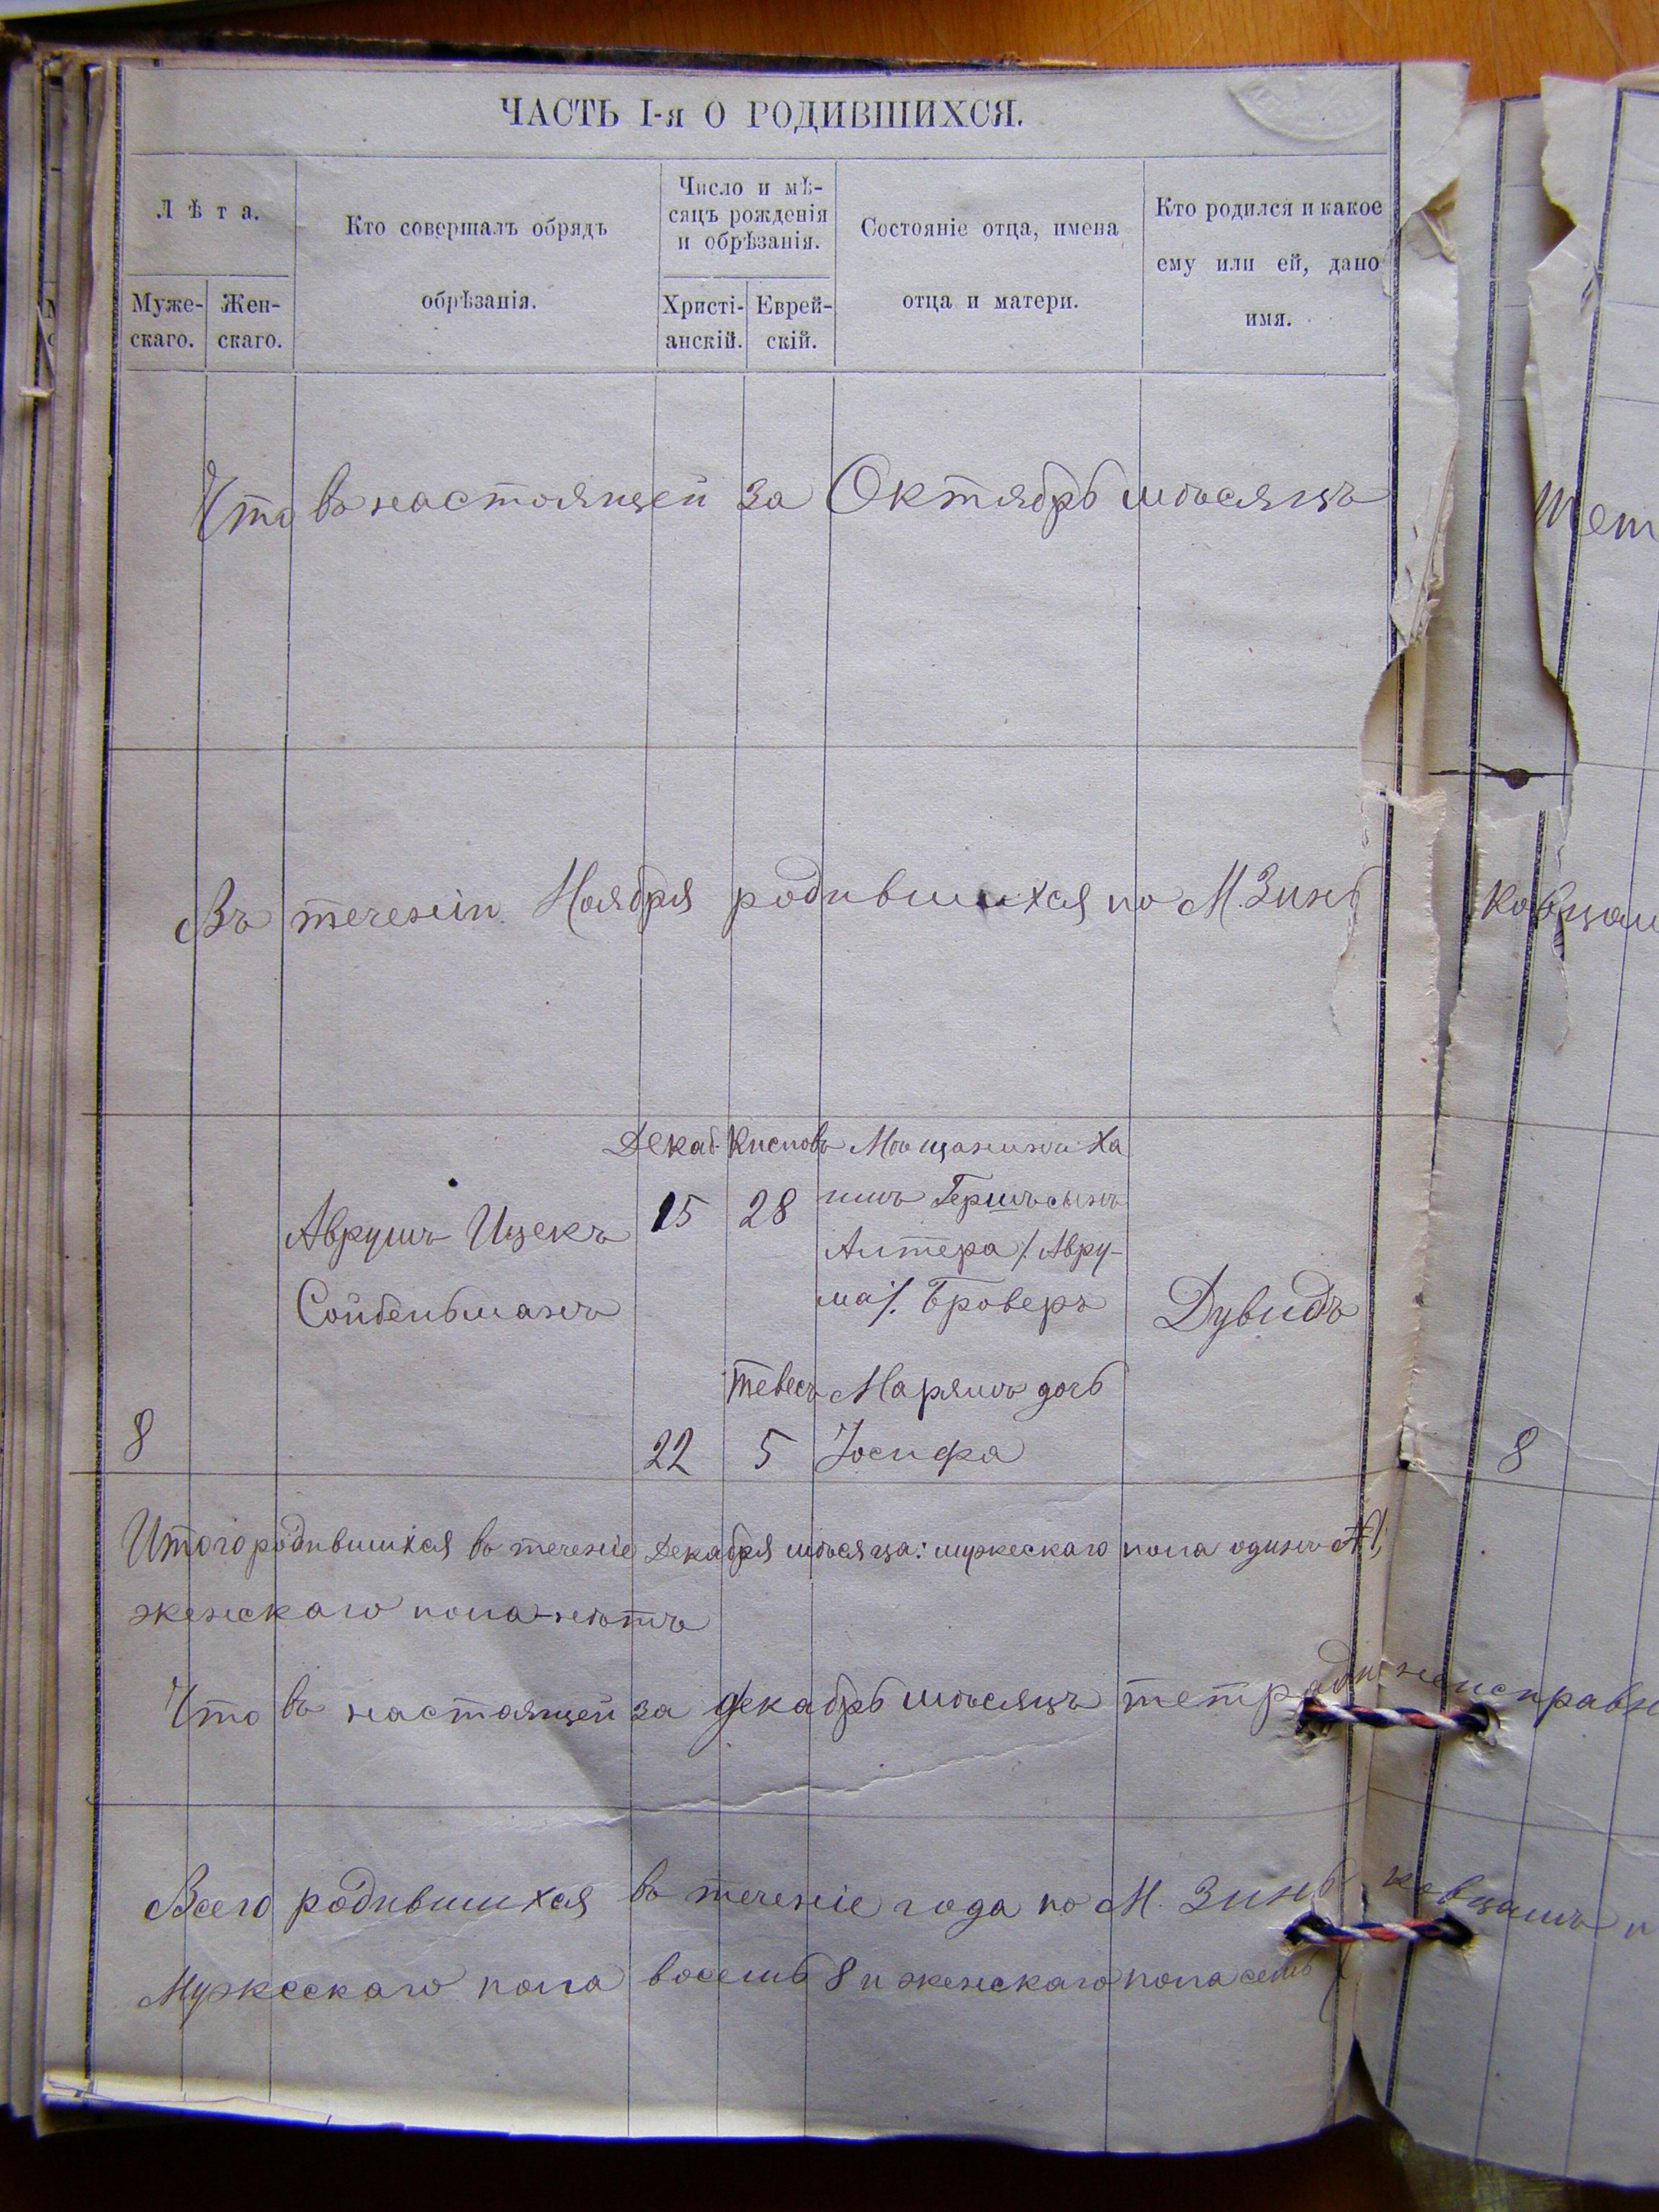 ЧАСТЬ I-я О РОДИВШИХСЯ.
Лѣта.
Муже-
скаго.
Жен-
скаго.
Кто совершалъ обрядъ
обрѣзанія.
Число и мѣ-
сяцъ рожденія
и обрѣзанія.
Христі-
анскій.
Еврей-
скій.
Состояніе отца, имена
отца и матери.
Кто родился и какое
ему или ей, дано
имя.
Что въ настоящей за Октябрь мѣсяцъ
Тет
Въ теченіи Ноября родившихся по М. Зинь
ковцам
8
Аврумъ Ицекъ
Сойбельманъ
Декаб.
15
22
Кислювъ
28
Тевесъ
5
Мѣщанинъ Ха
имъ Гершъ сынъ
Алтера /Авру-
ма/. Броверъ
Марямъ дочь
Іосифа
Дувидъ
8
Итого родившихся въ теченіе Декабря мѣсяца: мужескаго пола одинъ
женскаго пола-нѣтъ
Что въ настоящей за декабрь мѣсяцъ тетради неисправн
Всего родившихся въ теченіе года по М. Зинь ковцамъ
Мужескаго пола восемь 8 и женскаго пола семь